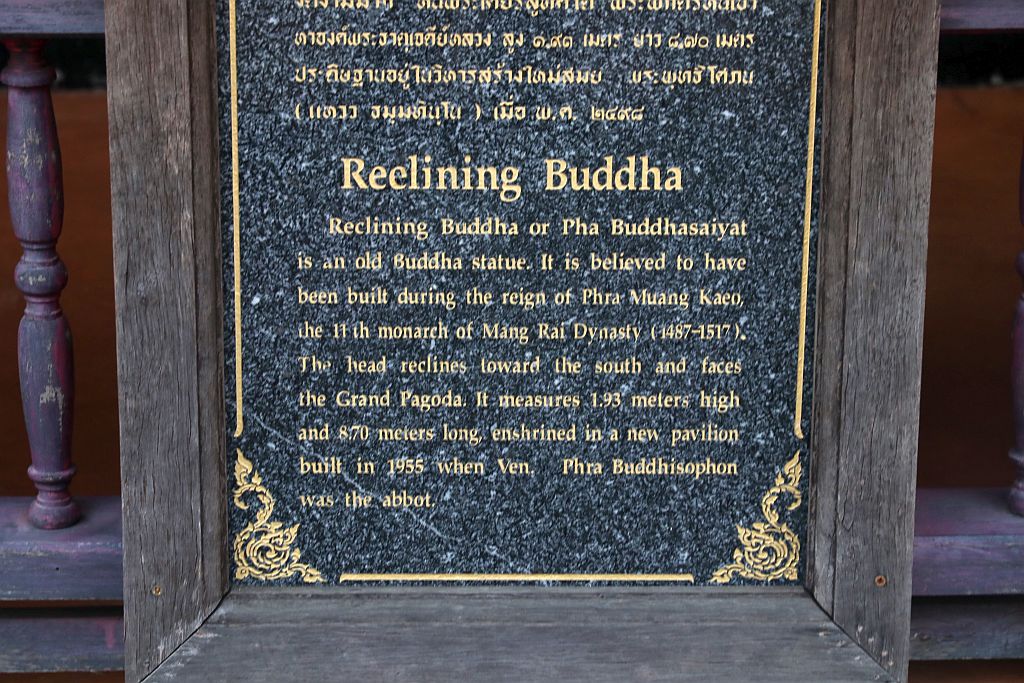 ทาองค์พระธาตุเจดีย์หลวง สูง ๑.๙๓ เมตร ยาว ๘.๗๐ เมตร
ประดิษฐานอยู่ในวิหารสร้างใหม่สมัย พระพุทธิโศภน
( แหวว ธมฺมทินฺโน ) เมื่อ พ.ศ. ๒๔๙๘
Reclining Buddha
Reclining Buddha or Pha Buddhasaiyat
is an old Buddha statue. It is believed to have
been built during the reign of Phra Muang Kaeo,
the 11 th monarch of Mang Rai Dynasty (1487-1517).
The head reclines toward the south and faces
the Grand Pagoda. It measures 1.93 meters high
and 8.70 meters long, enshrined in a new pavilion
built in 1955 when Ven. Phra Buddhisophon
was the abbot.